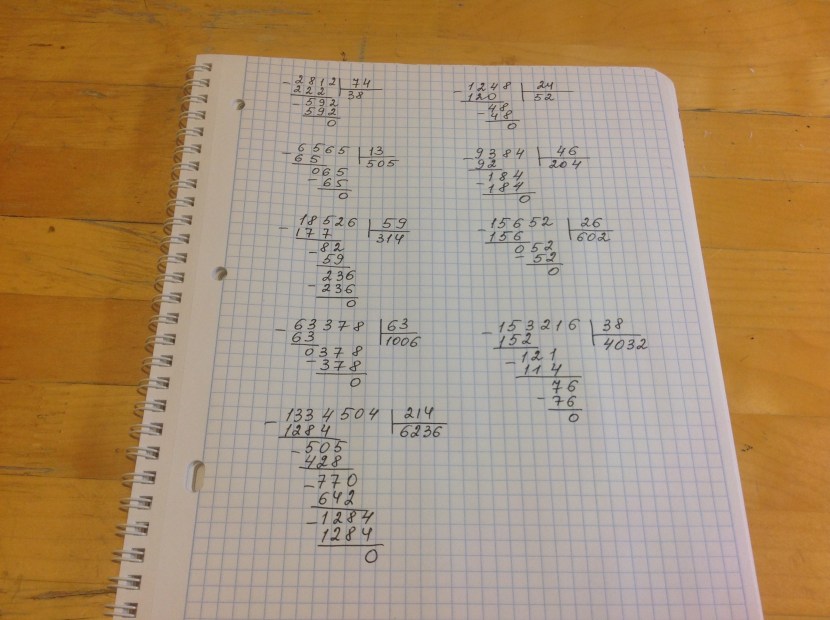 - 2812 | 74
222 | 38
- 592
592
0
- 1248 | 24
120 | 52
48
- 48
0
- 6565 | 13
65 | 505
065
- 65
0
- 9384 | 46
92 | 204
184
- 184
0
- 18526 | 59
177 | 314
- 82
59
236
- 236
0
- 15652 | 26
156 | 602
052
- 52
0
- 63378 | 63
63 | 1006
0378
- 378
0
- 153216 | 38
152 | 4032
- 121
114
76
- 76
0
- 1334504 | 214
1284 | 6236
- 505
428
- 770
642
- 1284
1284
0